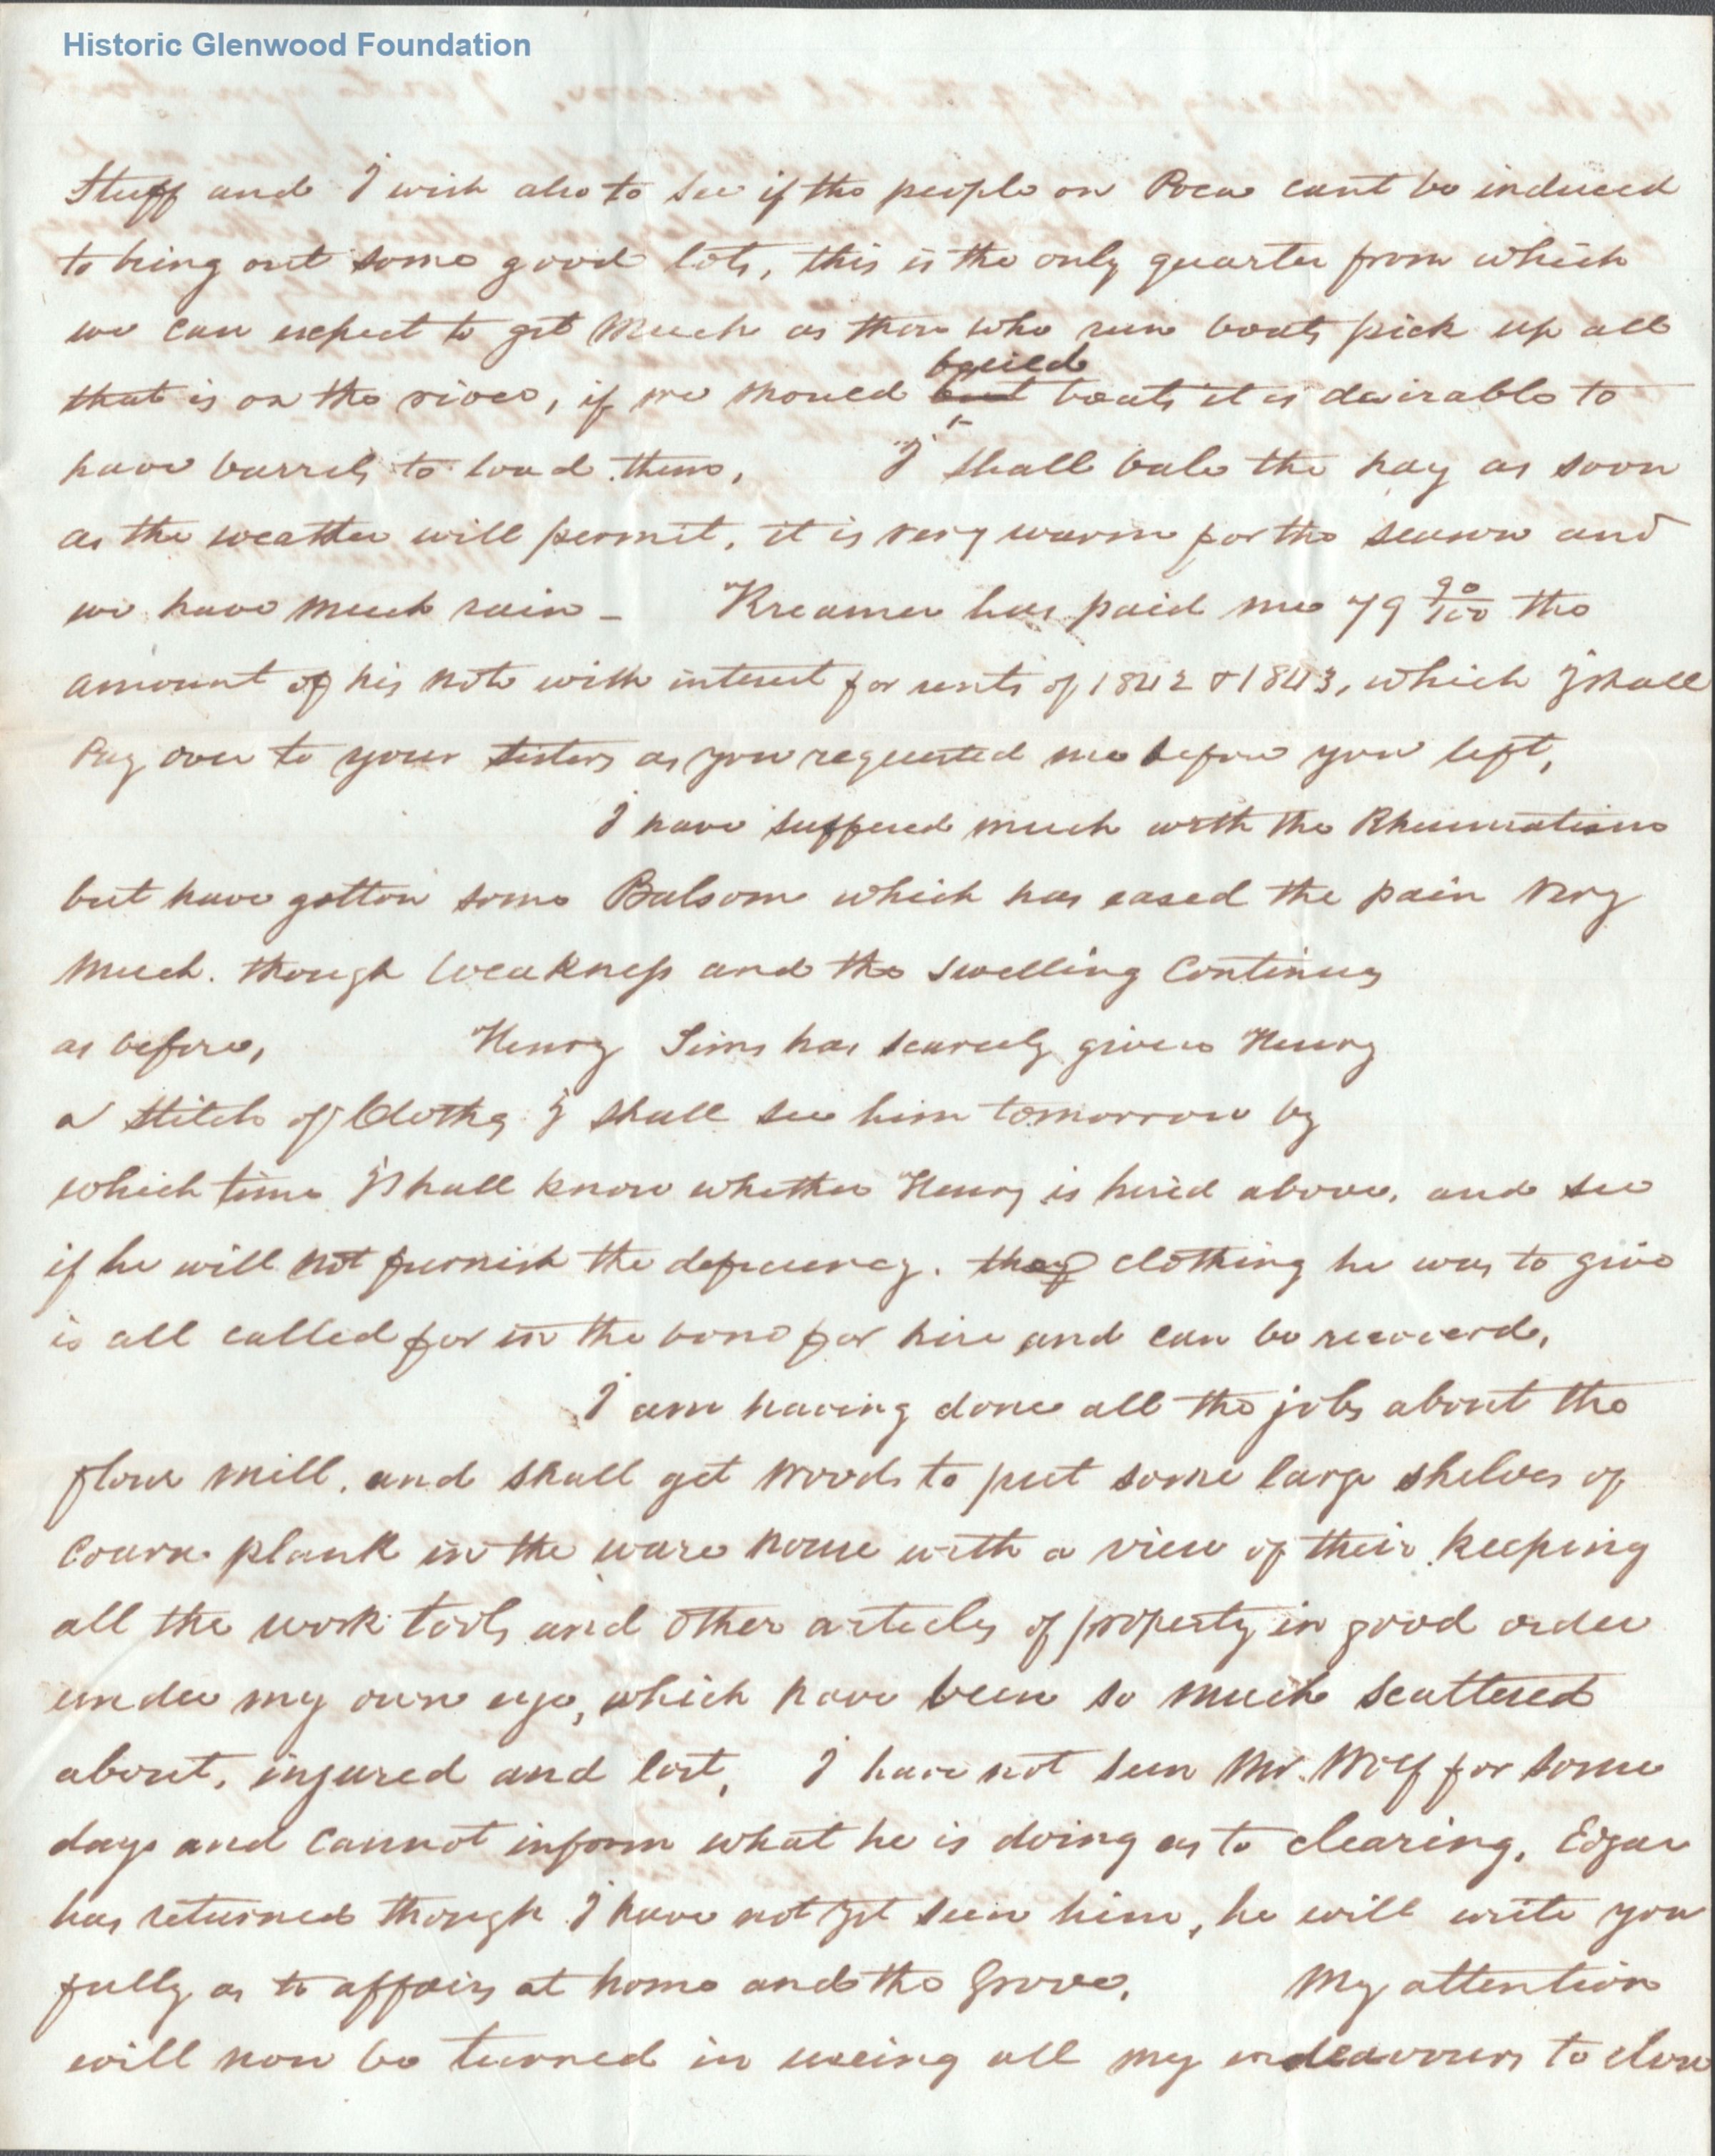 Historic Glenwood Foundation
Stuff and I wish also to see if the people on Poca cant be induced
to bring out some good lots, this is the only quarter from which
we can expect to get much as those who run boats pick up all
that is on the river, if we should but build boats it is desirable to
have barrels to load them, I shall bale the hay as soon
as the weather will permit, it is very warm for the season and
we have much rain - Kreamer has paid me 79 90/100 the
amount of his note with interest for rents of 1842 & 1843, which I shall
Pay over to your sisters as you requested me before you left,
I have suffered much with the Rheumatism
but have gotton some Balsom which has eased the pain very
much. though weakness and the swelling Continues
as before, Henry Sims has scarcely given Henry
a stitch of Clothes I shall see him tomorrow by
which time I shall know whether Henry is hired above, and see
if he will not furnish the deficiency. they clothing he was to give
is all called for in the bond for hire and can be recoverd,
I am having done all the jobs about the
flour mill, and shall get Woods to put some large shelves of
Coarse plank in the ware house with a view of their keeping
all the work tools and other articles of property in good order
under my own eye, which have been so much scattered
about, injured and lost, I have not seen Mr. Wolf for some
days and cannot inform what he is doing as to clearing, Edgar
has returned though I have not yet seen him, he will write you
fully as to affairs at home and the Grove, My attention
will now be turned in useing all my endeavours to close